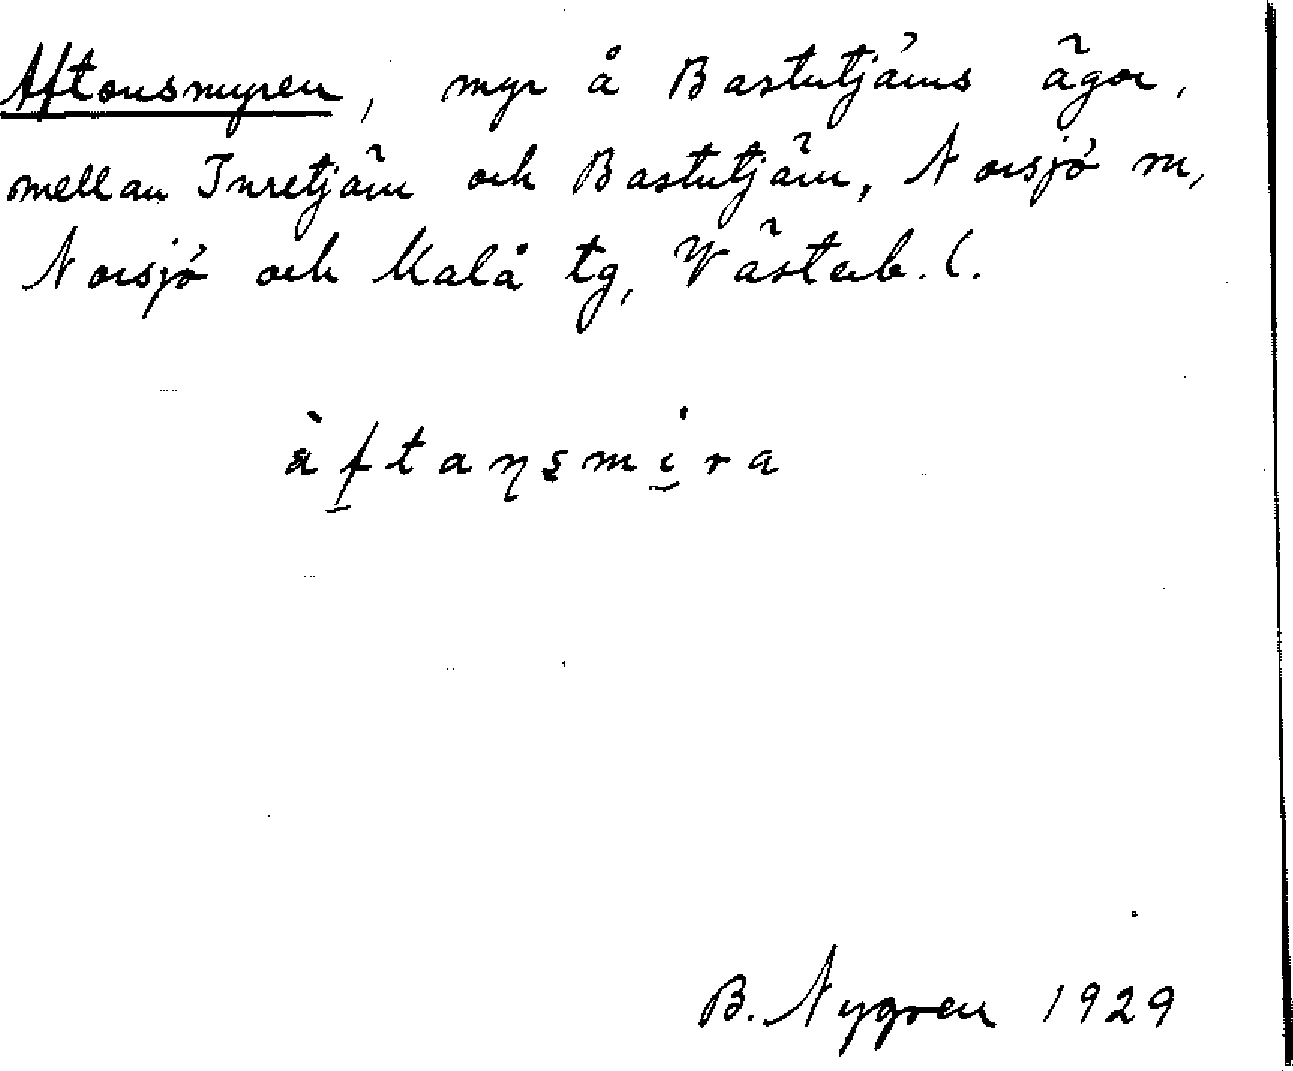 Aftonsmyren, myr å Bastutjärns ägor,
mellan Inretjärn och Bastutjärn, Norsjö sn,
Norsjö och Malå tg, Västerb. l.
àftaŋsmi̯ra
B. Nygren 1929